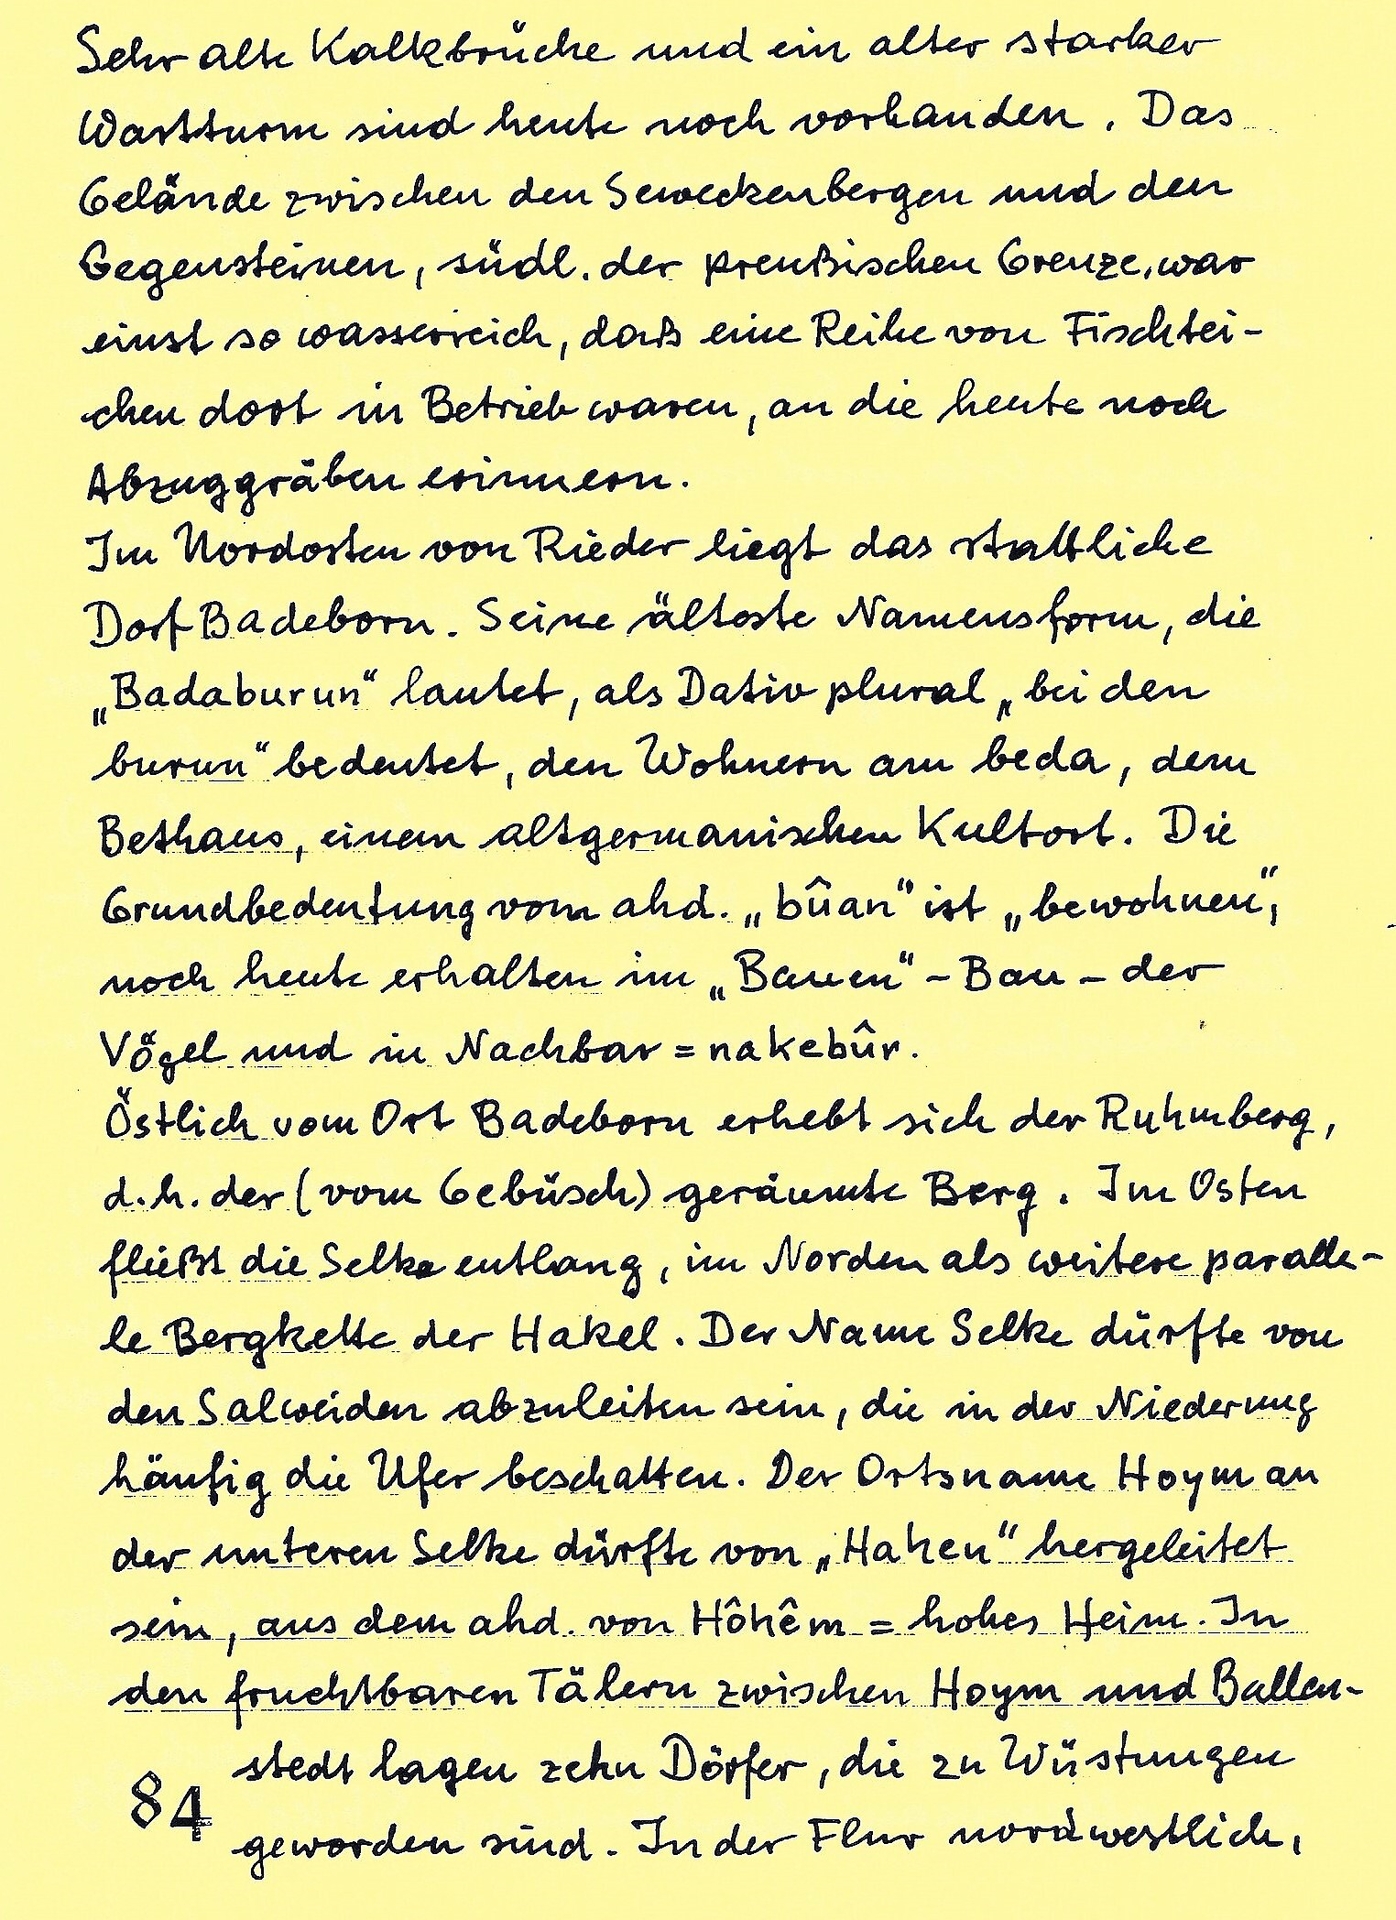 Sehr alte Kalkbrüche und ein alter starker
Wartturm sind heute noch vorhanden. Das
Gelände zwischen den Seweckenbergen und den
Gegensteinen, südl. der preußischen Grenze, war
einst so wasserreich, daß eine Reihe von Fischtei-
chen dort in Betrieb waren, an die heute noch
Abzuggräben erinnern.
Im Nordosten von Rieder liegt das stattliche
Dorf Badeborn. Seine älteste Namensform, die
„Badaburun“ lautet, als Dativ plural „bei den
burun“ bedeutet, den Wohnern am beda, dem
Bethaus, einem altgermanischen Kultort. Die
Grundbedeutung vom ahd. „bûan“ ist „bewohnen“,
noch heute erhalten im „Bauen“ - Bau - der
Vögel und in Nachbar = nakebûr.
Östlich vom Ort Badeborn erhebt sich der Ruhmberg,
d.h. der (vom Gebüsch) geräumte Berg. Im Osten
fließt die Selke entlang, im Norden als weitere paralle-
le Bergkette der Hakel. Der Name Selke dürfte von
den Salweiden abzuleiten sein, die in der Niederung
häufig die Ufer beschatten. Der Ortsname Hoym an
der unteren Selke dürfte von „Hahen“ hergeleitet
sein, aus dem ahd. von Hôhêm = hohes Heim. In
den fruchtbaren Tälern zwischen Hoym und Ballen-
stedt lagen zehn Dörfer, die zu Wüstungen
geworden sind. In der Flur nordwestlich,
84